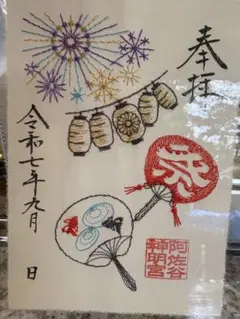 奉拝
令和七年九月　日
阿佐谷
神明宮